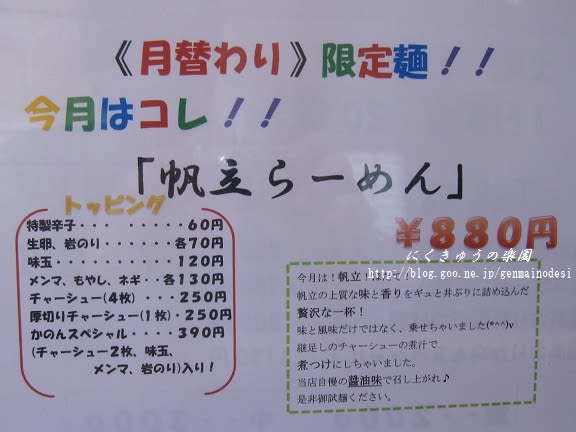 《月替わり》限定麺！！
今月はコレ！！
「帆立らーめん」
¥880円
トッピング
特製辛子・・・ ・・・・・60円
生卵、岩のり・・・・・各70円
味玉・・・・・・・・・120円
メンマ、もやし、ネギ・・各130円
チャーシュー(4枚) ・・・250円
厚切りチャーシュー(1枚)・250円
かのんスペシャル・・・・390円
(チャーシュー2枚、味玉、
メンマ、岩のり)入り！
にくきゅうの楽園
http://blog.goo.ne.jp/genmainodesi
今月は！帆立
帆立の上質な味と香りをギュと丼ぶりに詰め込んだ
贅沢な一杯！
味と風味だけではなく、乗せちゃいました(*^^)v
継足しのチャーシューの煮汁で
煮つけにしちゃいました。
当店自慢の醤油味で召し上がれ♪
是非御試麺ください。